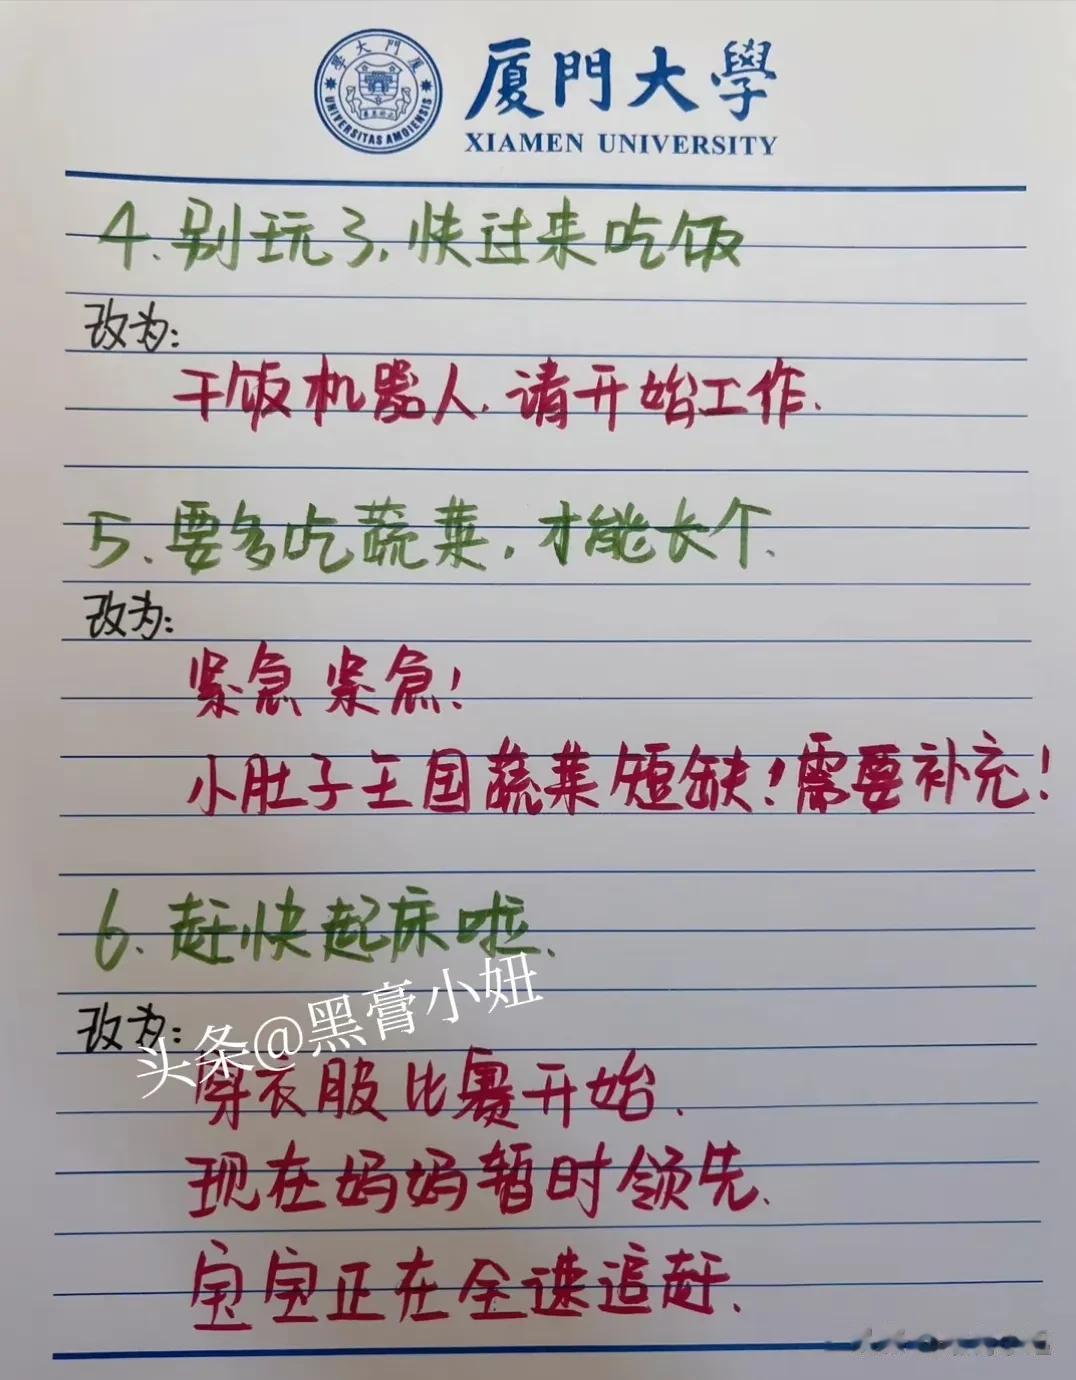 廈門大學
XIAMEN UNIVERSITY
學大門廈
UNIVERSITAS AMOIENSIS
4.别玩了,快过来吃饭
改为:
干饭机器人.请开始工作.
5.要多吃蔬菜,才能长个.
改为:
紧急 紧急!
小肚子王国蔬菜短缺!需要补充!
6.赶快起床啦.
改为:
头条@黑膏小妞
穿衣服比赛开始.
现在妈妈暂时领先.
宝宝正在全速追赶.